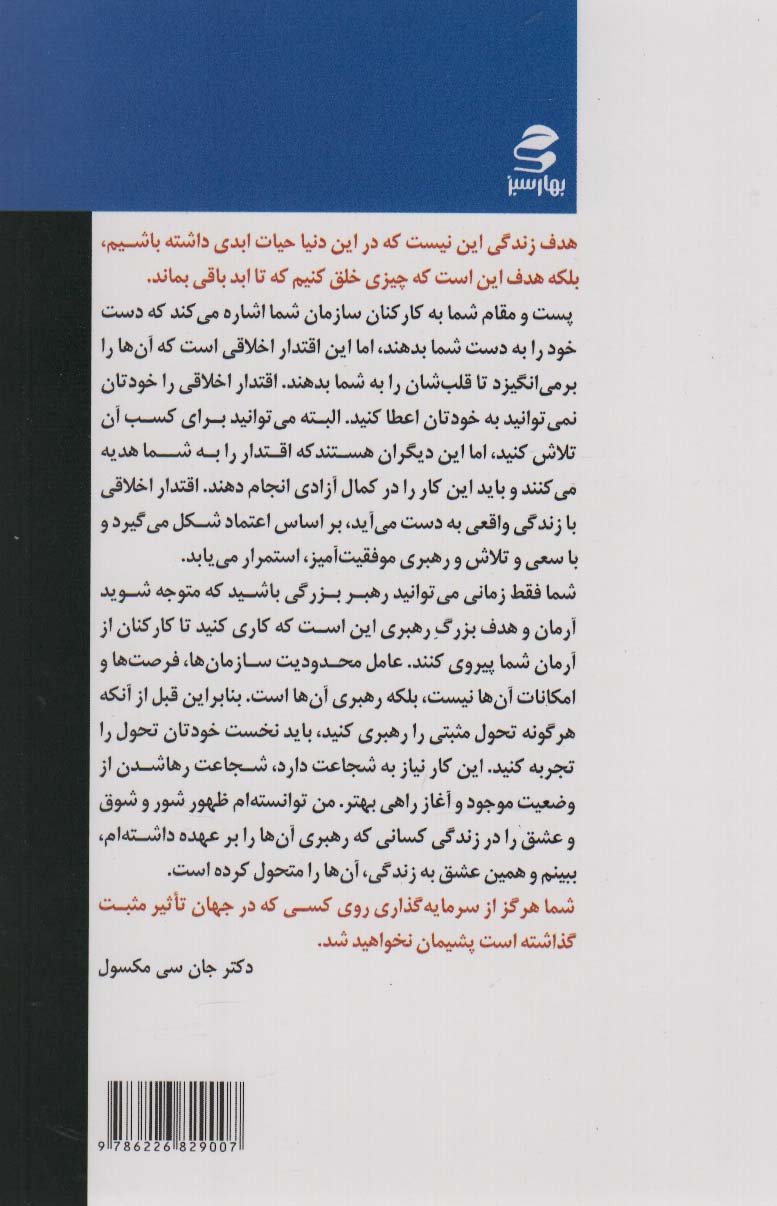 بهارسبز
هدف زندگی این نیست که در این دنیا حیات ابدی داشته باشیم،
بلکه هدف این است که چیزی خلق کنیم که تا ابد باقی بماند.
پست و مقام شما به کارکنان سازمان شما اشاره می‌کند که دست
خود را به دست شما بدهند، اما این اقتدار اخلاقی است که آن‌ها را
برمی‌انگیزد تا قلب‌شان را به شما بدهند. اقتدار اخلاقی را خودتان
نمی‌توانید به خودتان اعطا کنید. البته می‌توانید برای کسب آن
تلاش کنید، اما این دیگران هستندکه اقتدار را به شما هدیه
می‌کنند و باید این کار را در کمال آزادی انجام دهند. اقتدار اخلاقی
با زندگی واقعی به دست می‌آید، بر اساس اعتماد شکل می‌گیرد و
با سعی و تلاش و رهبری موفقیت‌آمیز، استمرار می‌یابد.
شما فقط زمانی می‌توانید رهبر بزرگی باشید که متوجه شوید
آرمان و هدف بزرگِ رهبری این است که کاری کنید تا کارکنان از
آرمان شما پیروی کنند. عامل محدودیت سازمان‌ها، فرصت‌ها و
امکانات آن‌ها نیست، بلکه رهبری آن‌ها است. بنابراین قبل از آنکه
هرگونه تحول مثبتی را رهبری کنید، باید نخست خودتان تحول را
تجربه کنید. این کار نیاز به شجاعت دارد، شجاعت رهاشدن از
وضعیت موجود و آغاز راهی بهتر. من توانسته‌ام ظهور شور و شوق
و عشق را در زندگی کسانی که رهبری آن‌ها را بر عهده داشته‌ام،
ببینم و همین عشق به زندگی، آن‌ها را متحول کرده است.
شما هرگز از سرمایه‌گذاری روی کسی که در جهان تأثیر مثبت
گذاشته است پشیمان نخواهید شد.
دکتر جان سی مکسول
9 786226 829007